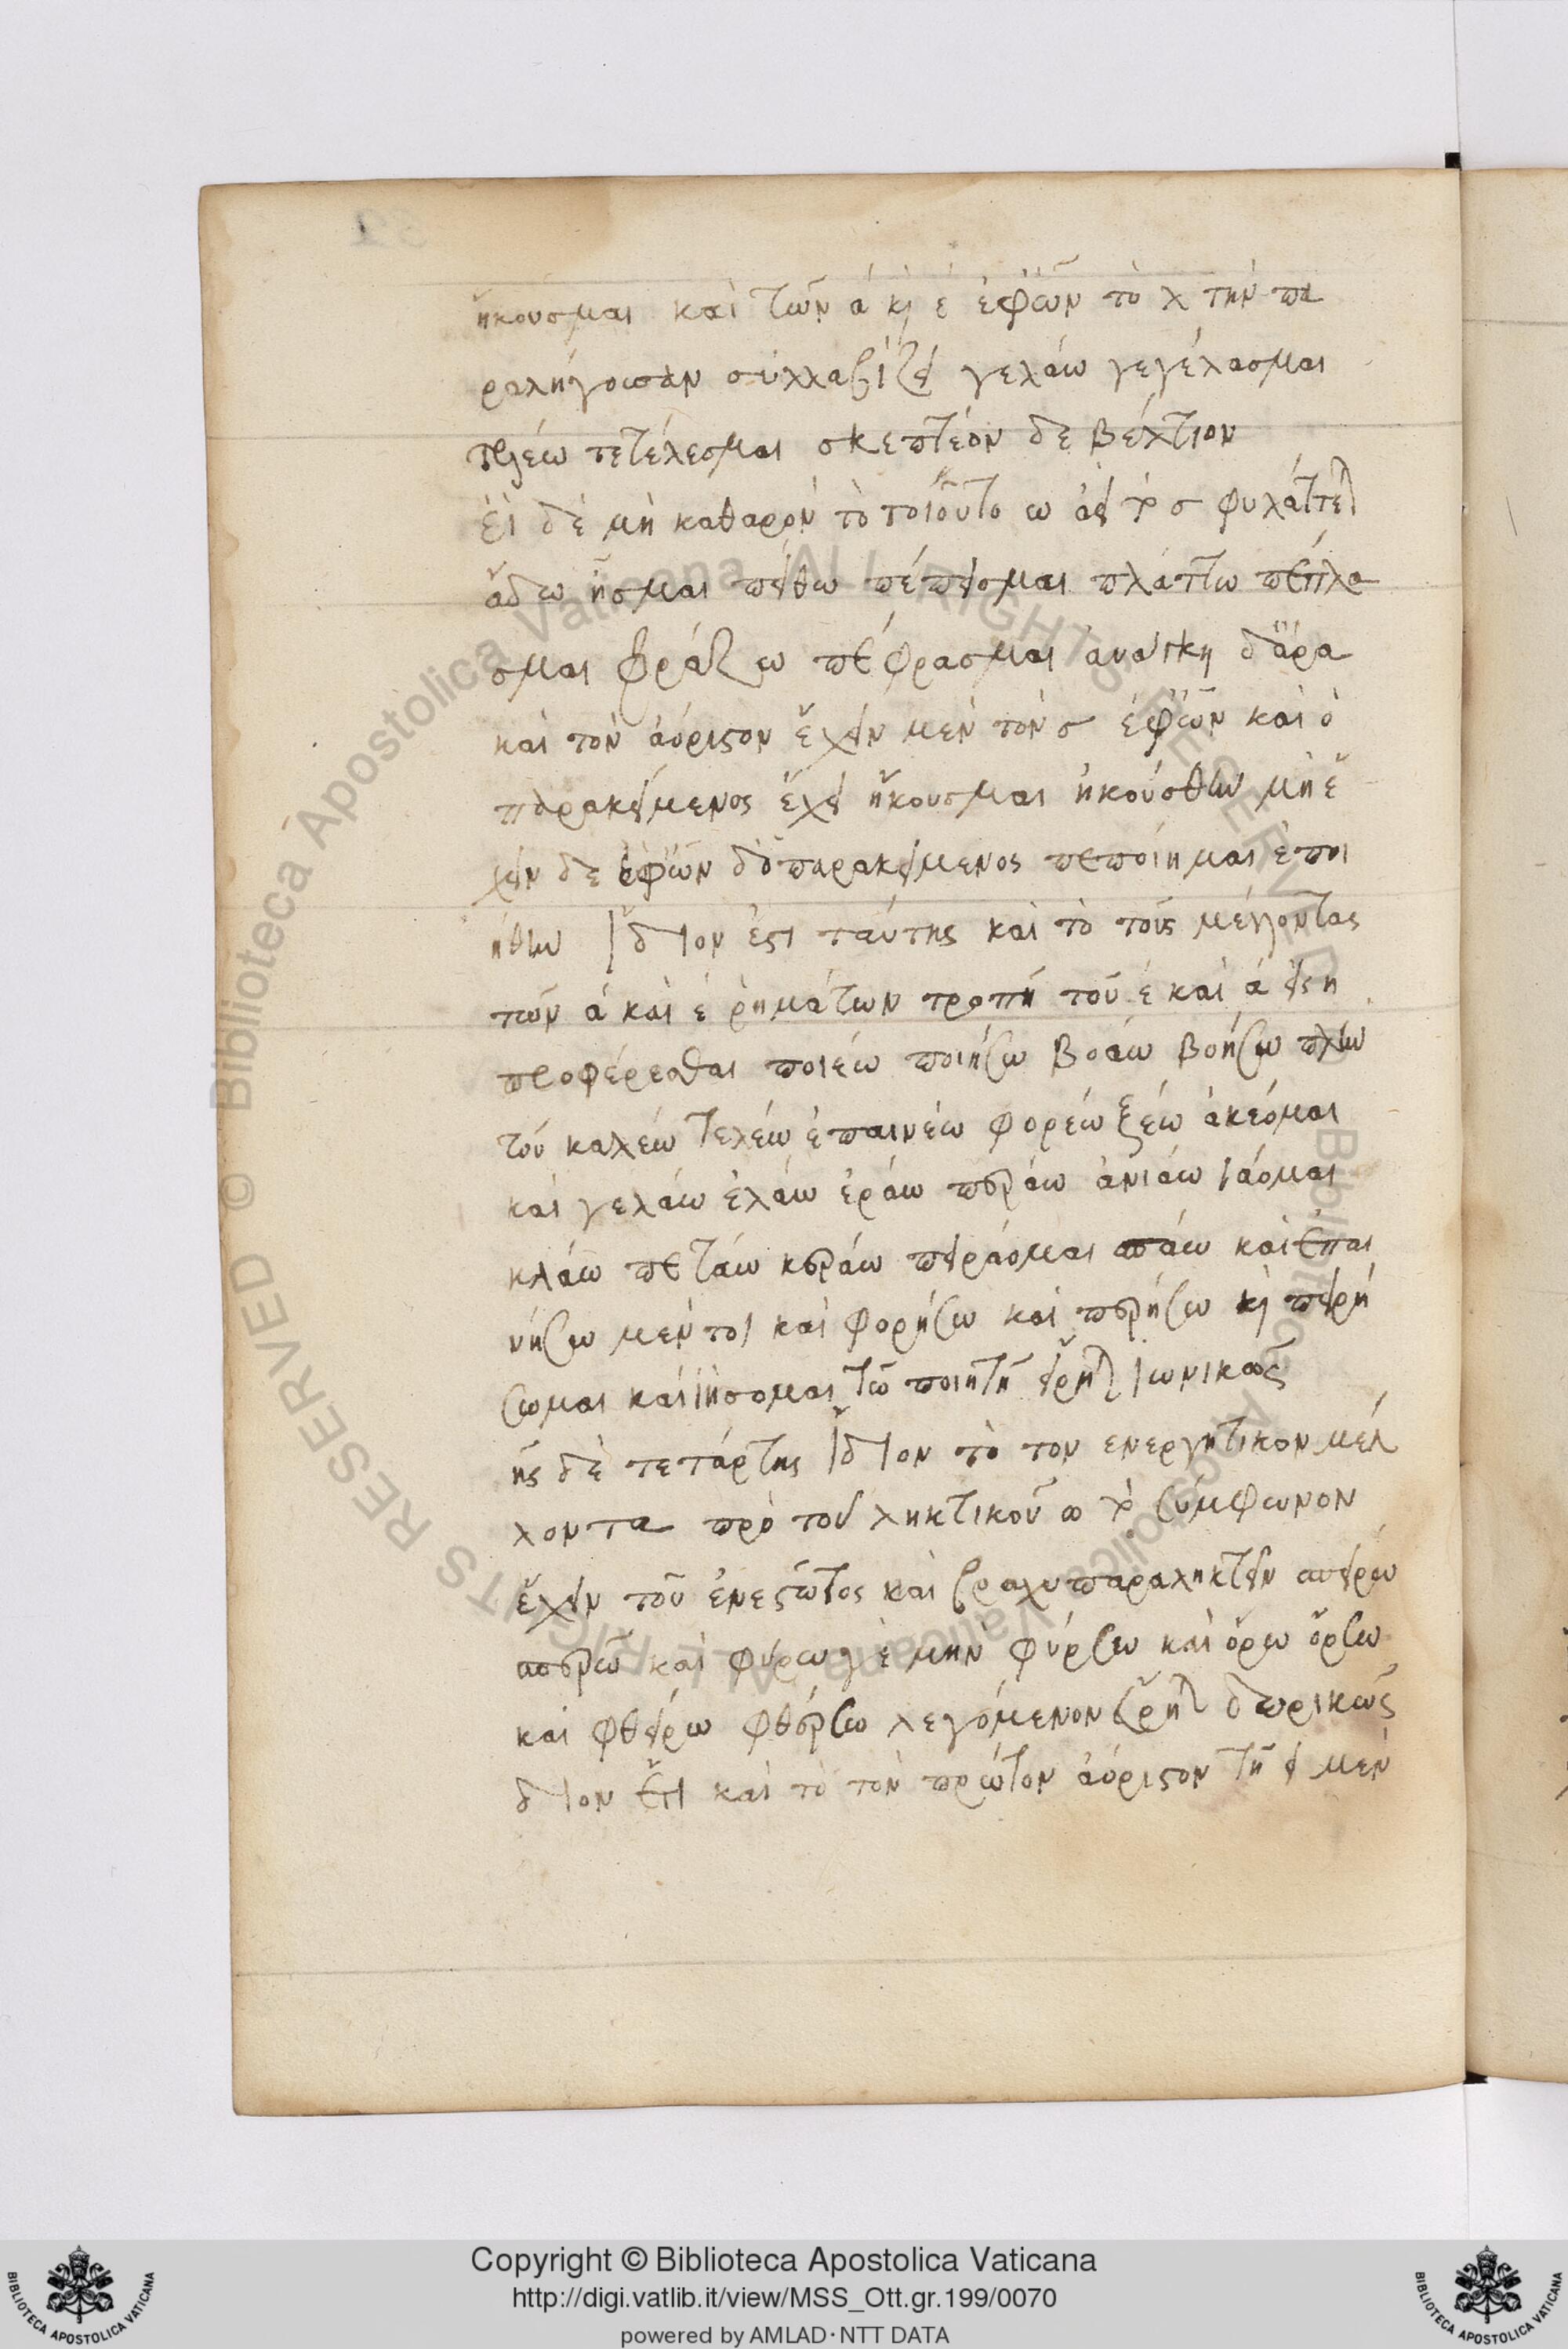 ἤκουσμαι καὶ τῶν ά κ̀ ε ἐφ' ὧν τὸ λ τὴν πα
ραλήγουσαν συλλαβίζει γελάω γεγέλασμαι
τελέω τετέλεσμαι σκεπτέον δε βέλτιον
εἰ δὲ μὴ καθαρὸν τὸ τοιοῦτο ω ἀεὶ τὸ σ φυλάττει
ἄδω ἦσμαι πείθω πέπεισμαι πλάττω πέπλα
σμαι φράζω πέφρασμαι ἀνάγκη δ' ἄρα
καὶ τὸν ἀόριστον ἔχειν μεν τὸν σ ἐφ' ὧν καὶ ὁ
παρακείμενος ἔχει ἤκουσμαι ἠκούσθην μὴ ἔ
χειν δε ἐφ' ὧν δ' ὁ παρακείμενος πεποίημαι ἐποι
ήθην ἴδιον ἐστι ταύτης καὶ τὸ τοὺς μέλλοντας
τῶν ά καὶ έ ῥημάτων τροπῇ τοῦ έ καὶ ά εἰς η
προφέρεσθαι ποιέω ποιήσω βοάω βοήσω πλὴν
τοῦ καλέω τελέω ἐπαινέω φορέω ξέω ἀκέομαι
καὶ γελάω ἐλάω ἐράω περάω ἀνιάω ἰάομαι
κλάω πετάω κεράω πειράομαι σπάω καὶ ἐπαι
νήσω μέντοι καὶ φορήσω καὶ περήσω κ̀ πειρή
σωμαι καὶ ἰήσομαι τῶ ποιητῇ εἴρηται ἰωνικῶς
ῆς δὲ τετάρτης ἴδιον τὸ τον ενεργητικον μέλ
λοντα προ τοῦ ληκτικοῦ ω τὸ σύμφωνον
ἔχειν τοῦ ἐνεστῶτος καὶ βραχυπαραληκτεῖν σπείρω
σπερῶ καὶ φύρω γὲ μὴν φύρσω καὶ ὄρω ὄρσω
και φθείρω φθέρσω λεγόμενον εἴρηται δωρικῶς
διον ἔτι καὶ τὸ τὸν πρῶτον ἀόριστον τῇ ει μεν
Copyright © Biblioteca Apostolica Vaticana
http://digi.vatlib.it/view/MSS_Ott.gr.199/0070
powered by AMLAD·NTT DATA